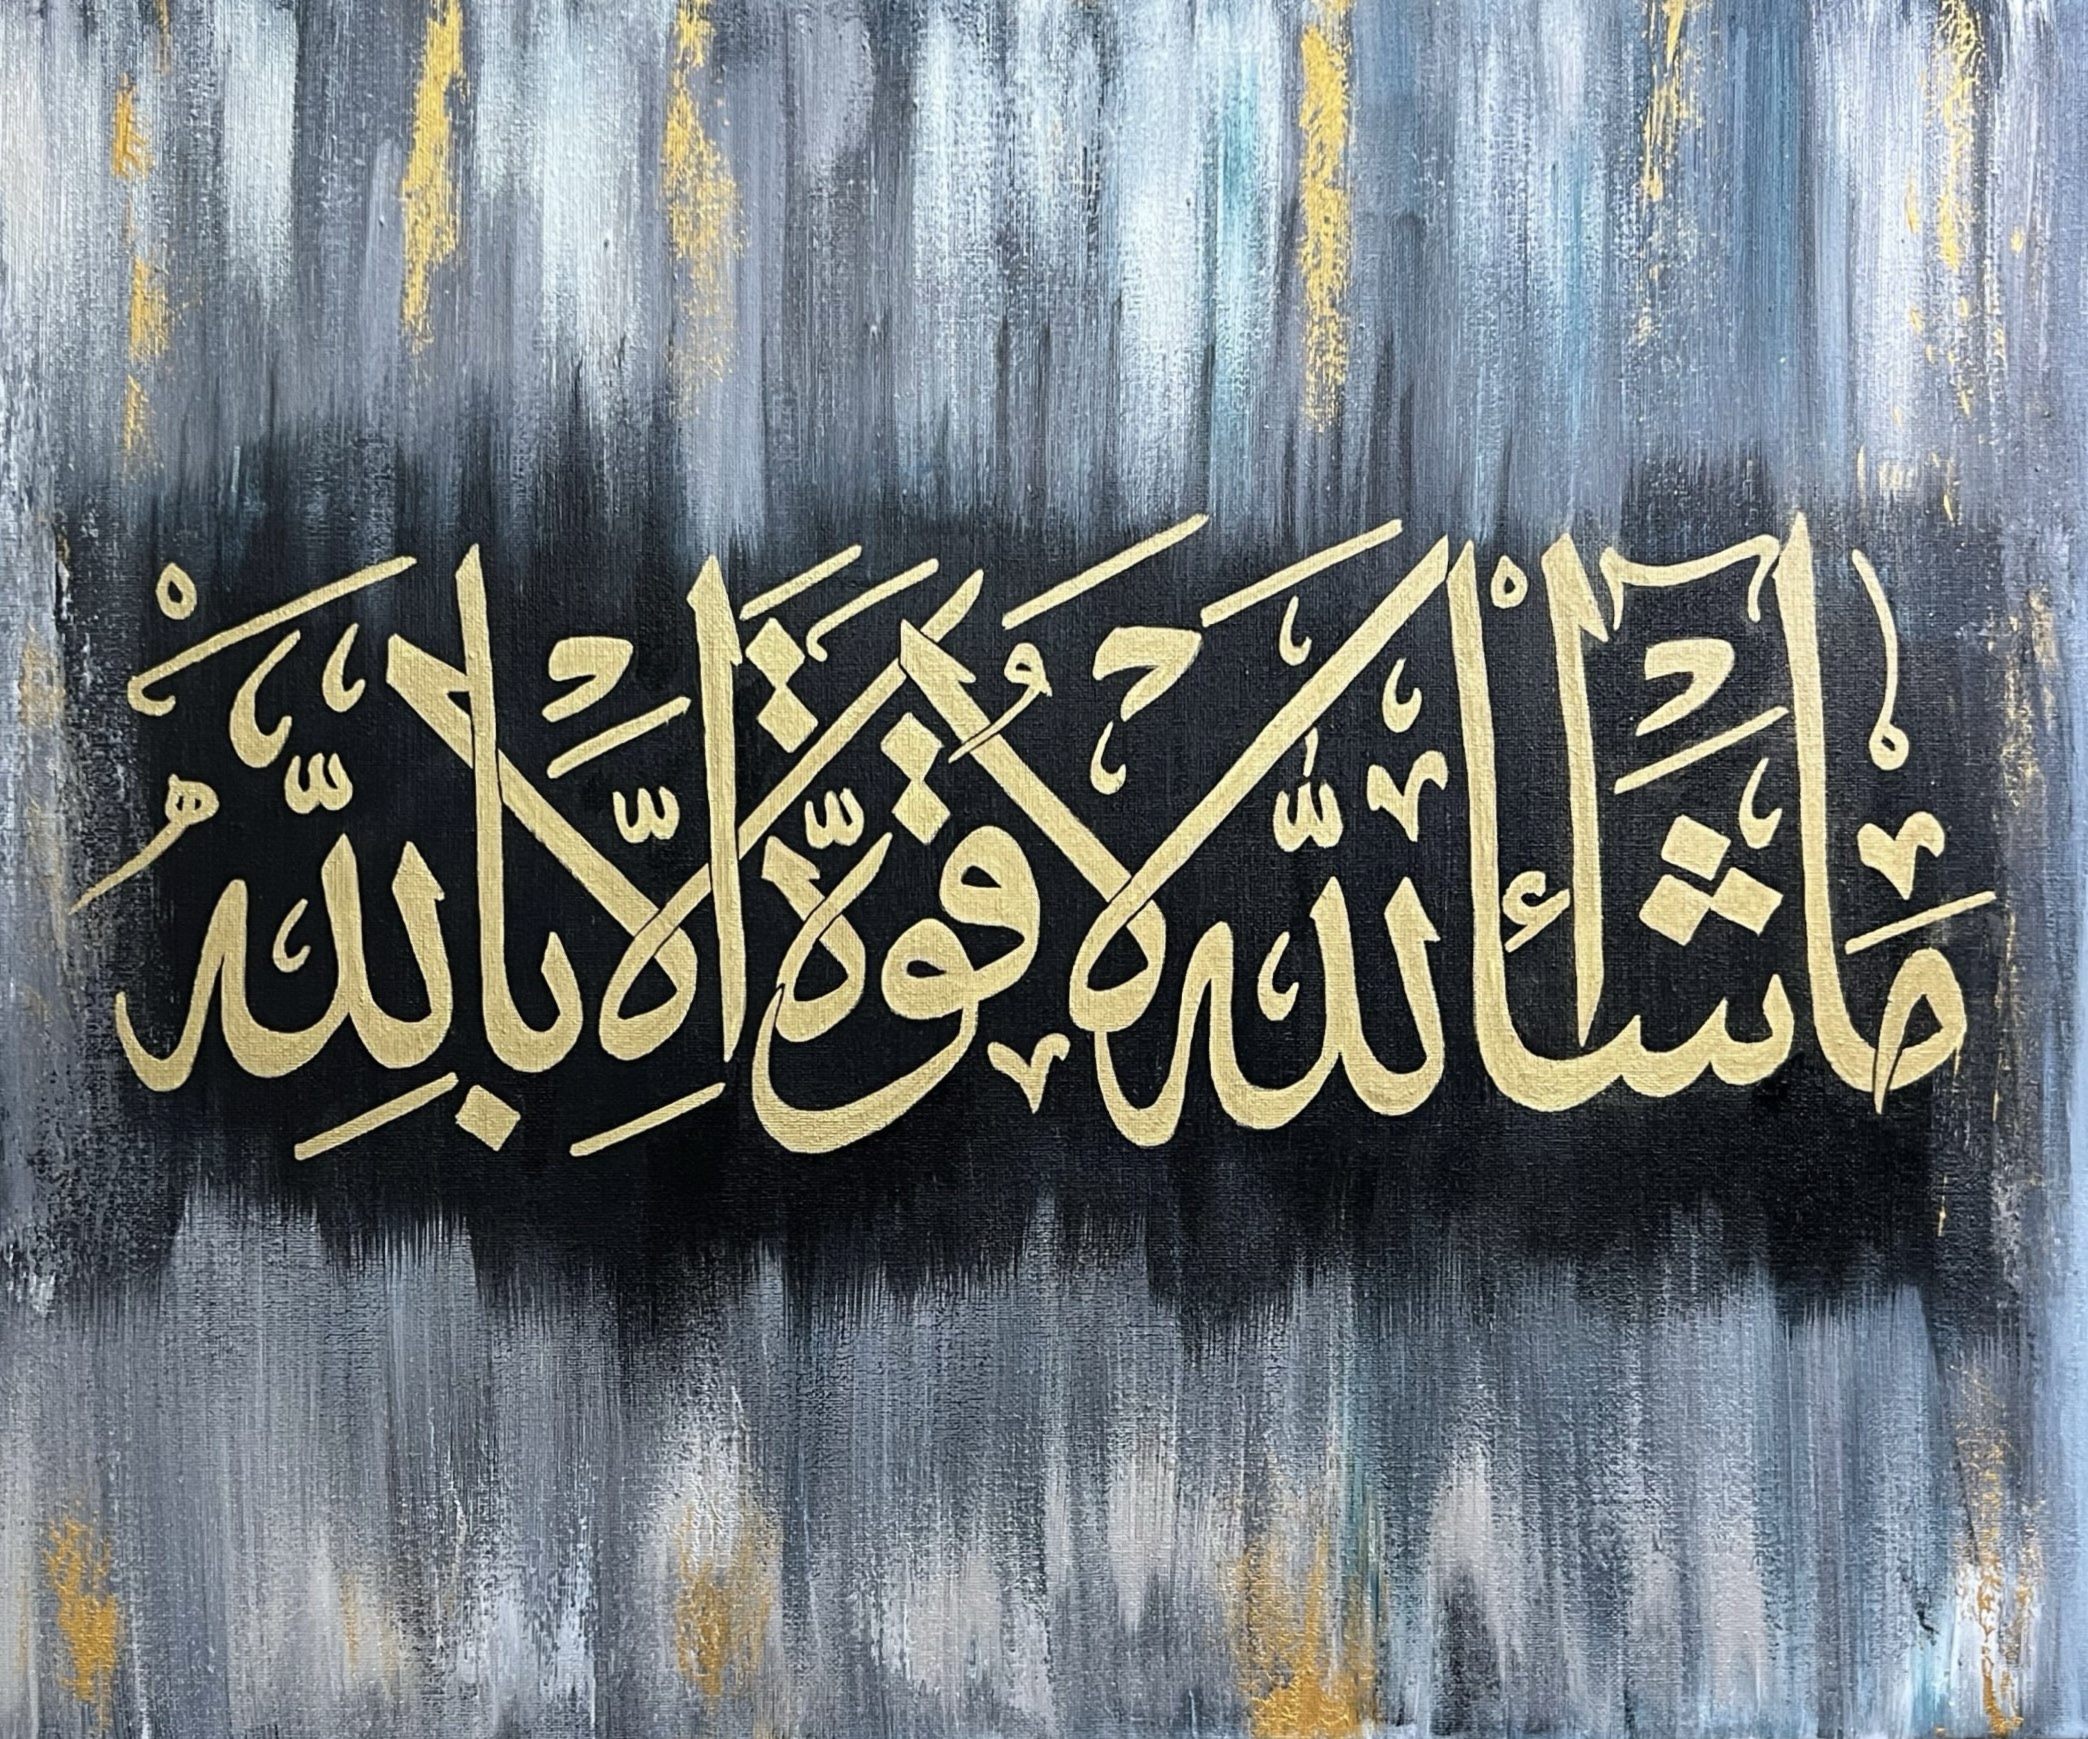 مَا شَاءَ اللّٰهُ لَا قُوَّةَ اِلَّا بِاللّٰهِ